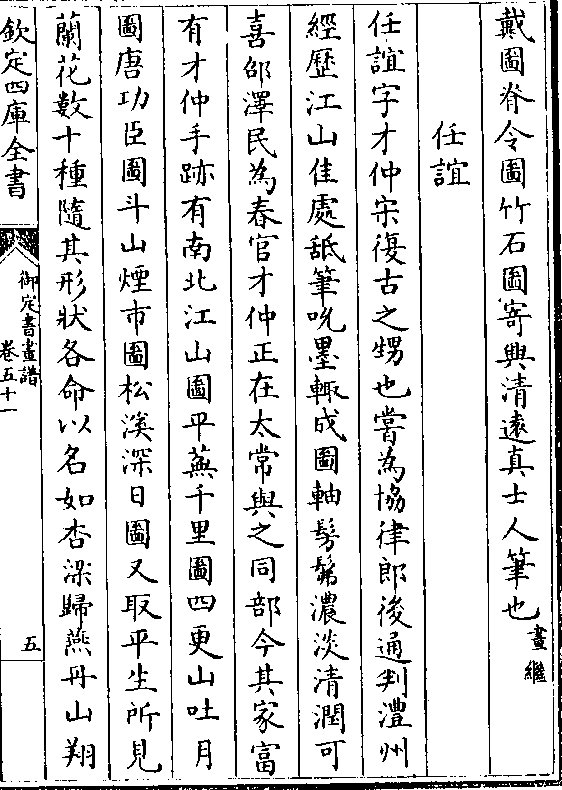 戴圖脊令圖竹石圖寄興清遠真士人筆也畫繼
任誼
任誼字才仲宋復古之甥也嘗為協律郎後通判澧州
經歷江山佳處舐筆吮墨輙成圖軸髣髴濃淡清潤可
喜邵澤民為春官才仲正在太常與之同部今其家富
有才仲手跡有南北江山圖平蕪千里圖四更山吐月
圖唐功臣圖斗山煙市圖松溪深日圖又取平生所見
蘭花數十種隨其形狀各命以名如杏梁歸燕丹山翔
欽定四庫全書
御定書畫譜
卷五十一
五